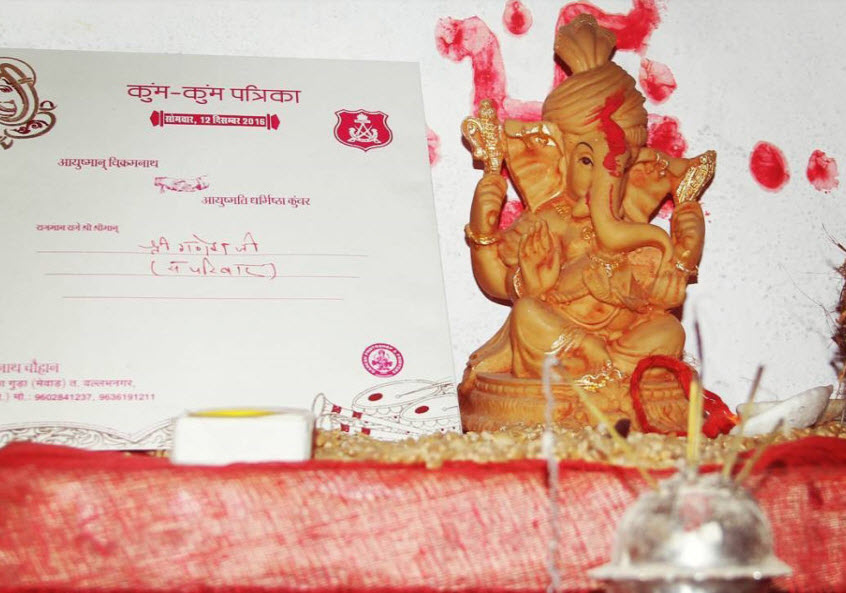 कुंम-कुंम पत्रिका
सोमवार, 12 दिसम्बर 2016
आयुष्मान् विक्रमनाथ
आयुष्मति धर्मिष्ठा कुंवर
राजमान राजे श्री श्रीमान्
श्री गणेश जी
(स परिवार)
नाथ चौहान
गुड़ा (मेवाड़) त. वल्लभनगर,
.) मो.: 9602841237, 9636191211